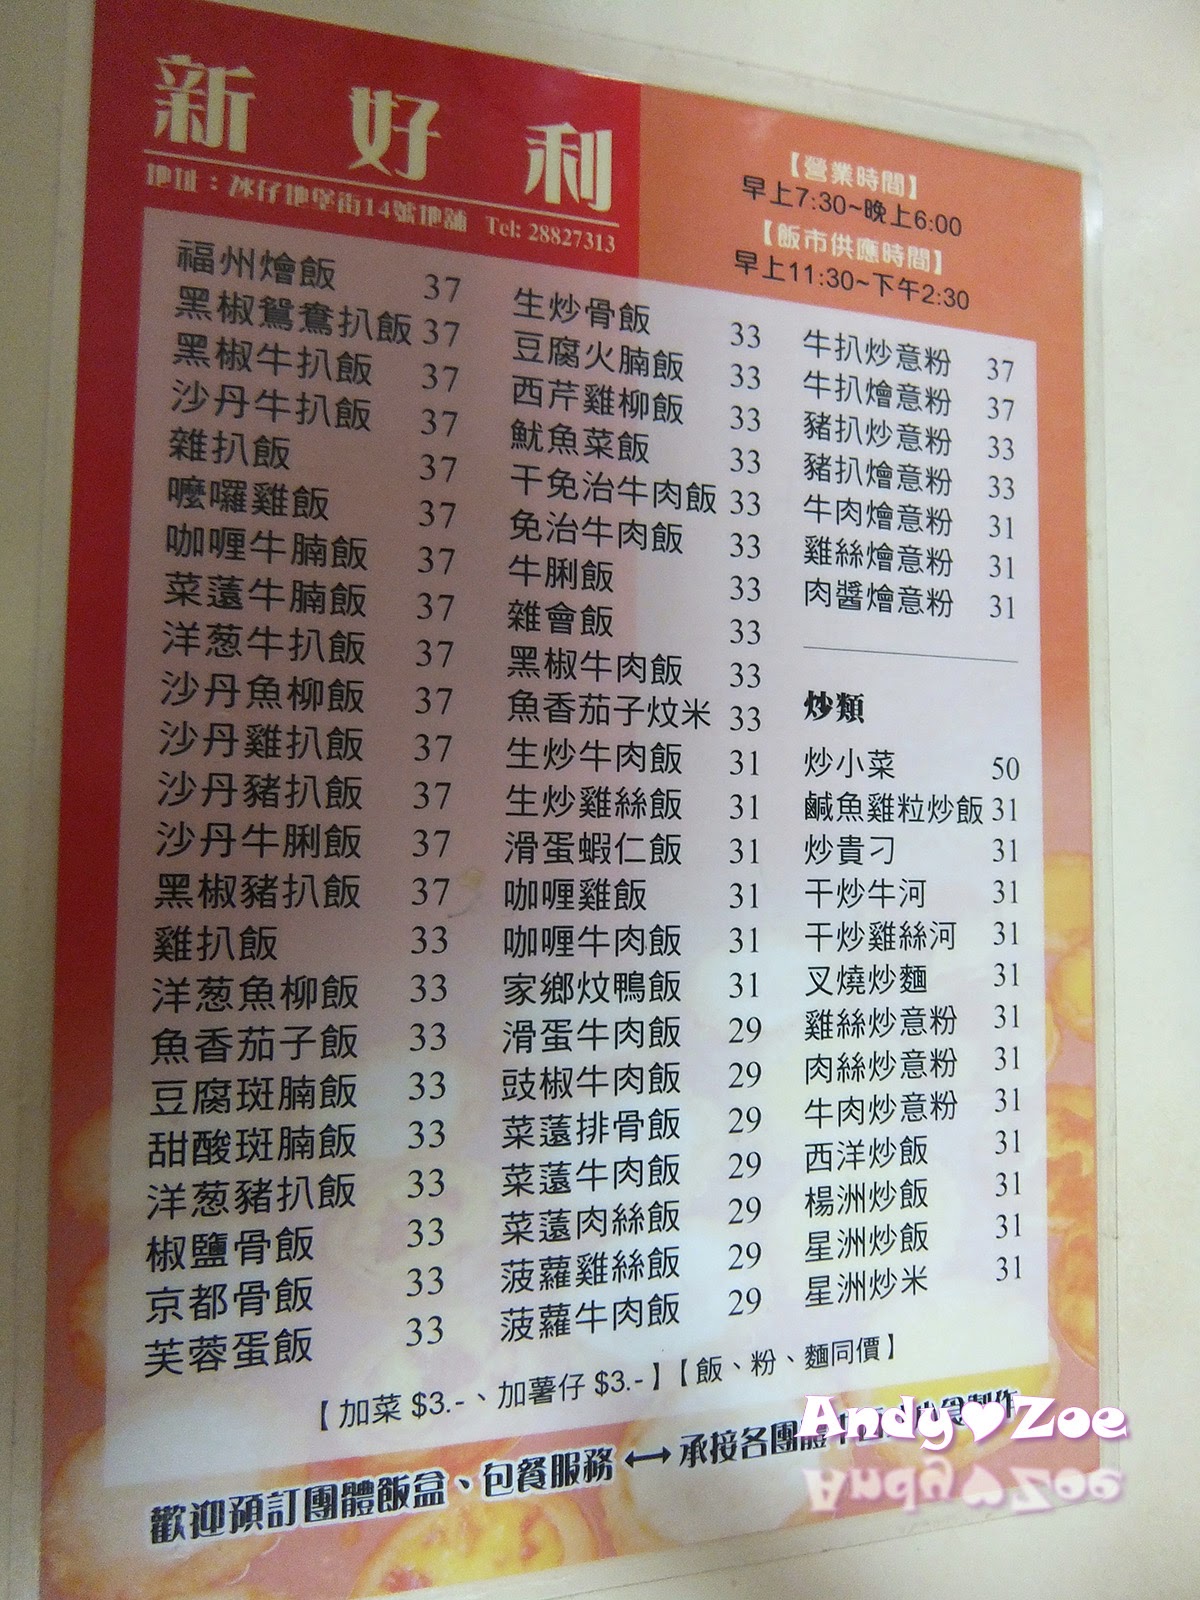 新好利
地址：氹仔地堡街14號地舖 Tel: 28827313
【營業時間】
早上7:30~晚上6:00
【飯市供應時間】
早上11:30~下午2:30
福州燴飯 37
黑椒鴛鴦扒飯 37
黑椒牛扒飯 37
沙丹牛扒飯 37
雜扒飯 37
嚒囉雞飯 37
咖喱牛腩飯 37
菜薳牛腩飯 37
洋葱牛扒飯 37
沙丹魚柳飯 37
沙丹雞扒飯 37
沙丹豬扒飯 37
沙丹牛脷飯 37
黑椒豬扒飯 37
雞扒飯 33
洋葱魚柳飯 33
魚香茄子飯 33
豆腐斑腩飯 33
甜酸斑腩飯 33
洋葱豬扒飯 33
椒鹽骨飯 33
京都骨飯 33
芙蓉蛋飯 33
生炒骨飯 33
豆腐火腩飯 33
西芹雞柳飯 33
魷魚菜飯 33
干免治牛肉飯 33
免治牛肉飯 33
牛脷飯 33
雜會飯 33
黑椒牛肉飯 33
魚香茄子炆米 33
生炒牛肉飯 31
生炒雞絲飯 31
滑蛋蝦仁飯 31
咖喱雞飯 31
咖喱牛肉飯 31
家鄉炆鴨飯 31
滑蛋牛肉飯 29
豉椒牛肉飯 29
菜薳排骨飯 29
菜薳牛肉飯 29
菜薳肉絲飯 29
菠蘿雞絲飯 29
菠蘿牛肉飯 29
牛扒炒意粉 37
牛扒燴意粉 37
豬扒炒意粉 33
豬扒燴意粉 33
牛肉燴意粉 31
雞絲燴意粉 31
肉醬燴意粉 31
炒類
炒小菜 50
鹹魚雞粒炒飯 31
炒貴刁 31
干炒牛河 31
干炒雞絲河 31
叉燒炒麵 31
雞絲炒意粉 31
肉絲炒意粉 31
牛肉炒意粉 31
西洋炒飯 31
楊洲炒飯 31
星洲炒飯 31
星洲炒米 31
【加菜 $3.-、加薯仔 $3.-】【飯、粉、麵同價】
歡迎預訂團體飯盒、包餐服務↔承接各團體
Andy♥Zoe